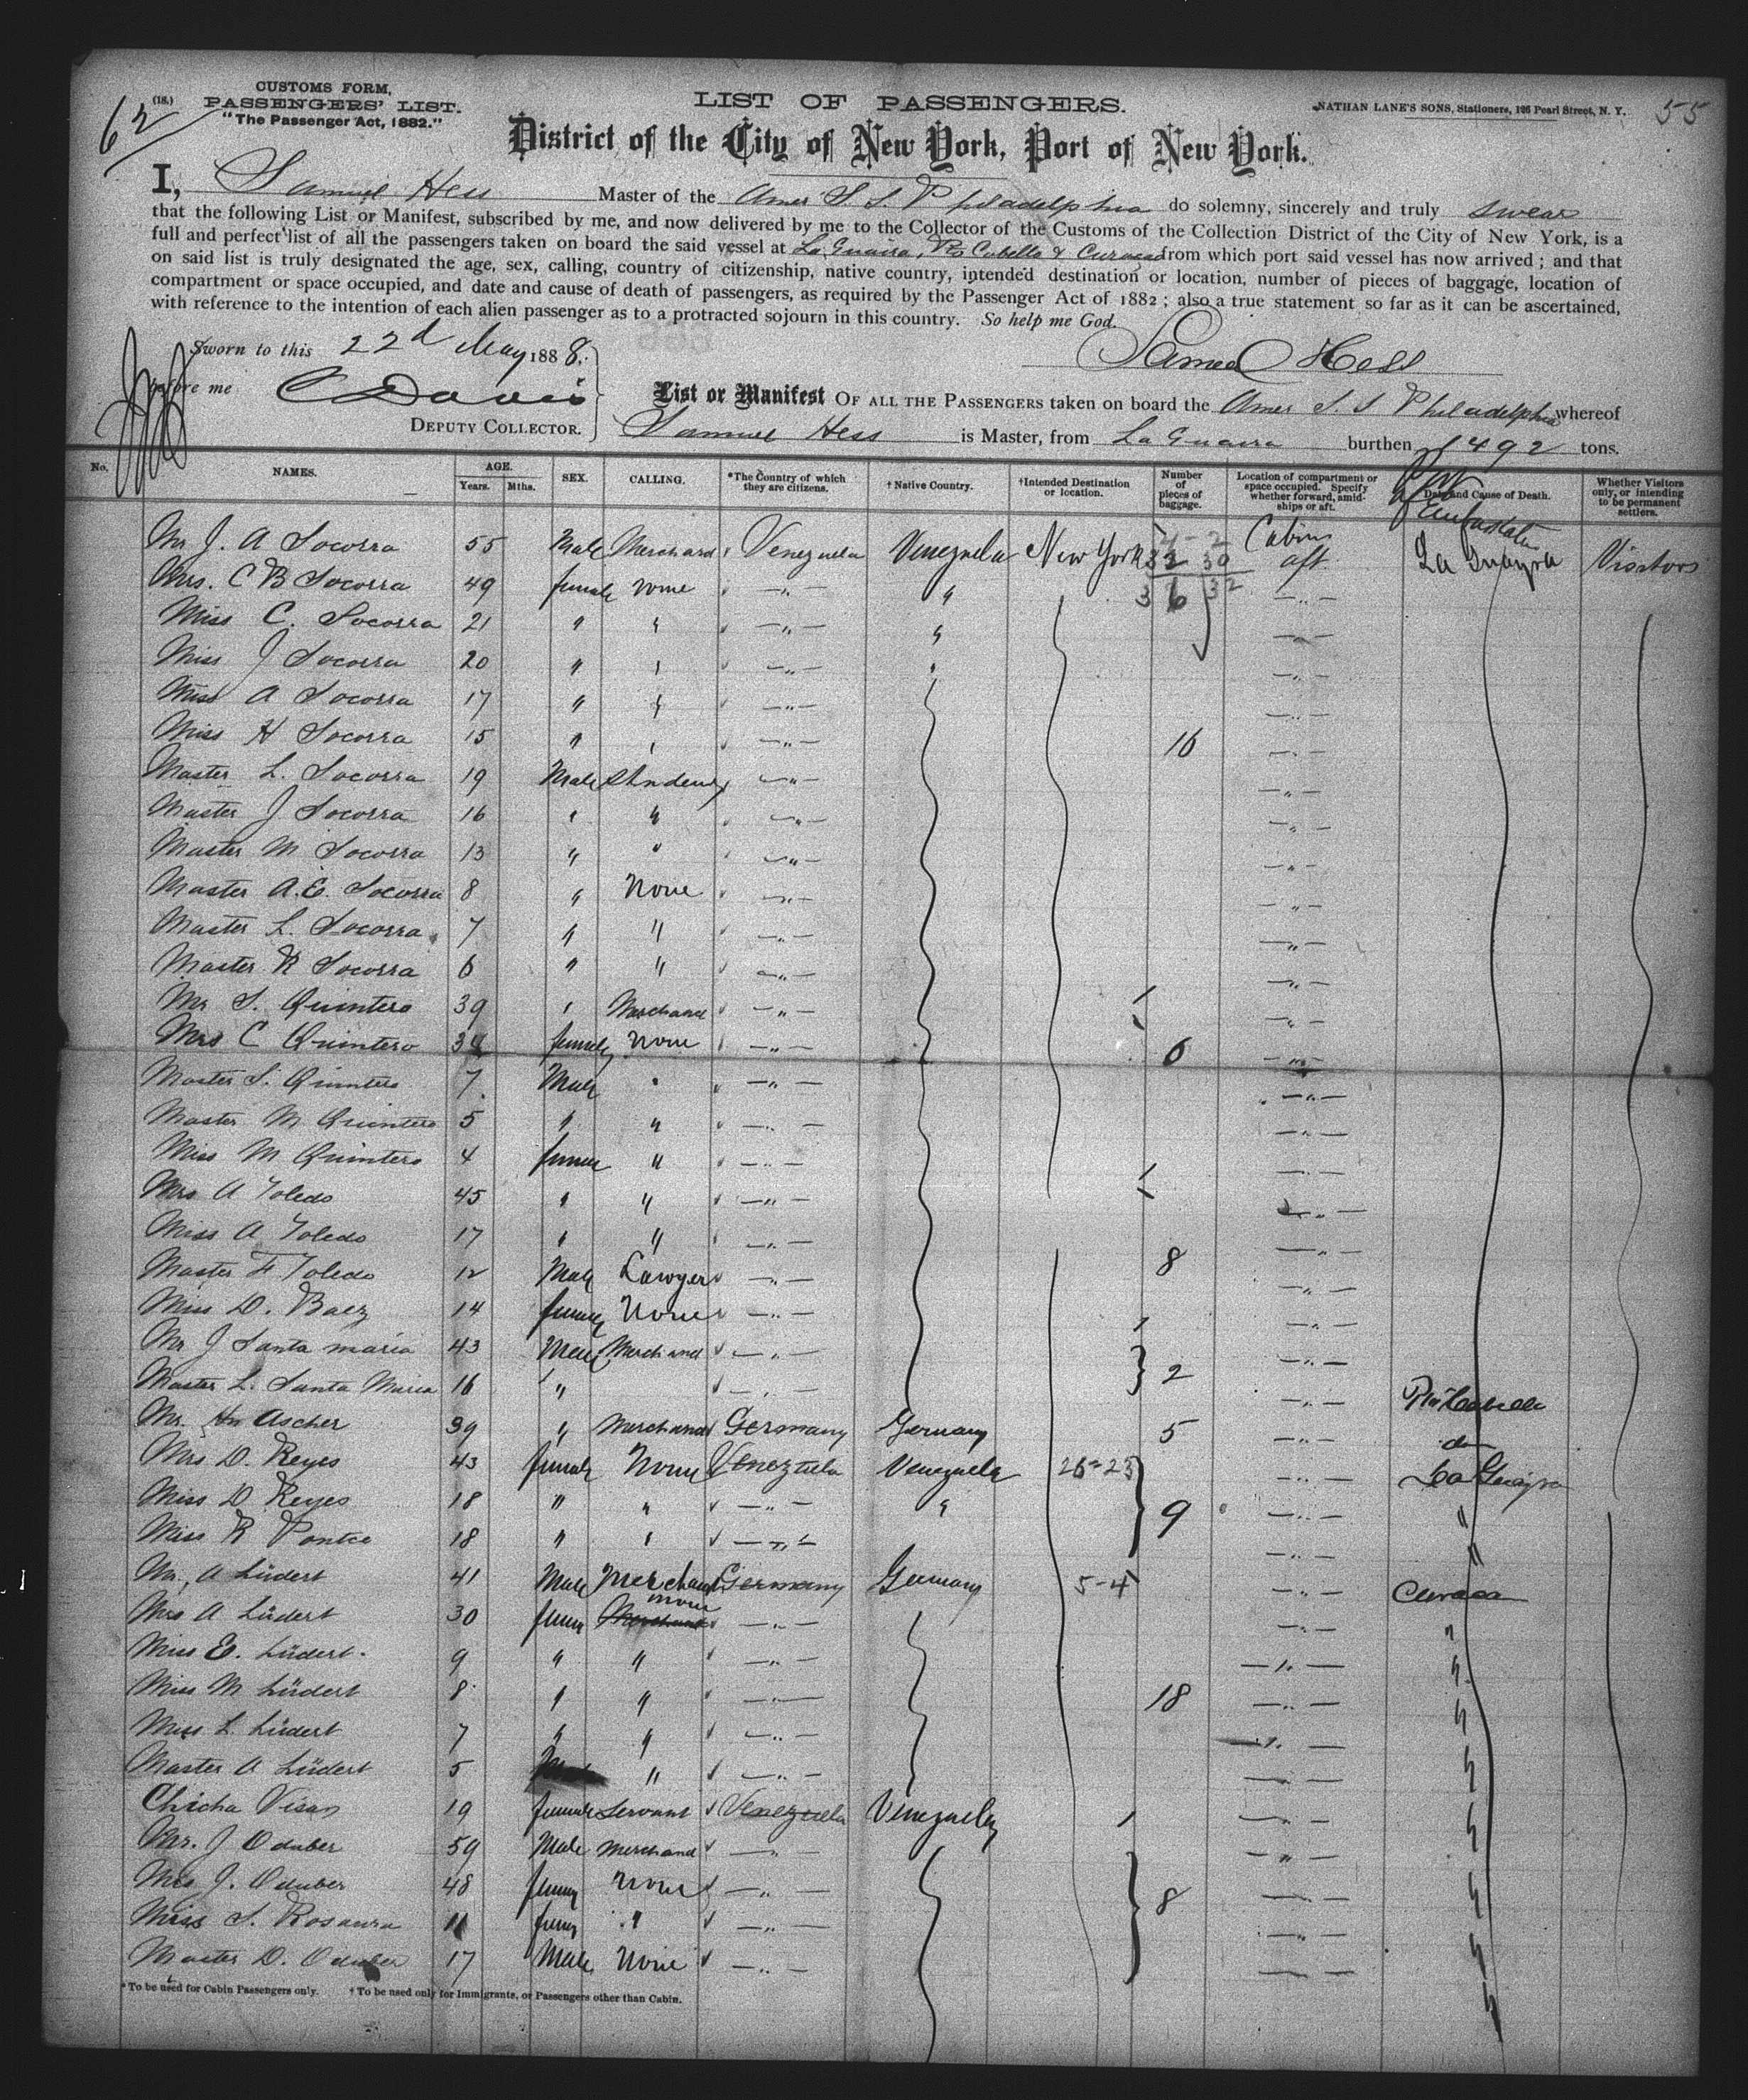 62
(18.)
CUSTOMS FORM,
PASSENGERS' LIST.
"The Passenger Act, 1882."
LIST OF PASSENGERS.
NATHAN LANE'S SONS, Stationers, 196 Pearl Street, N. Y.
55
District of the City of New York, Port of New York.
I, Samuel Hess Master of the Amer S. S. Philadelphia do solemny, sincerely and truly swear
that the following List or Manifest, subscribed by me, and now delivered by me to the Collector of the Customs of the Collection District of the City of New York, is a
full and perfect list of all the passengers taken on board the said vessel at La Guaira, Po Cabello & Curacao from which port said vessel has now arrived; and that
on said list is truly designated the age, sex, calling, country of citizenship, native country, intended destination or location, number of pieces of baggage, location of
compartment or space occupied, and date and cause of death of passengers, as required by the Passenger Act of 1882; also a true statement so far as it can be ascertained,
with reference to the intention of each alien passenger as to a protracted sojourn in this country. So help me God.
Sworn to this 22d May 1888.
Samuel Hess
before me C Davis
DEPUTY COLLECTOR.
List or Manifest OF ALL THE PASSENGERS taken on board the Amer S. S Philadelphia whereof
Samuel Hess is Master, from La Guaira burthen 1492 tons.
No. NAMES. AGE. Years. Mths. SEX. CALLING. *The Country of which they are citizens. †Native Country. †Intended Destination or location. Number of pieces of baggage. Location of compartment or space occupied. Specify whether forward, amidships or aft. Date and Cause of Death. Whether Visitors only, or intending to be permanent settlers.
Mr J. A Socorra 55 Male Merchand Venezuela Venezuela New York Cabins aft La Guayra Visitors
Mrs. C B Socorra 49 female none " " 36 32 "
Miss C. Socorra 21 " " " " "
Miss J Socorra 20 " " " " "
Miss A Socorra 17 " " " "
Miss H Socorra 15 " " " 16 "
Master L. Socorra 19 Male Student " "
Master J Socorra 16 " " " "
Master M Socorra 13 " " " "
Master A. E. Socorra 8 " None " "
Master L. Socorra 7 " " " "
Master R Socorra 6 " " " "
Mr S. Quintero 39 " Merchand " "
Mrs C Quintero 34 female None " 6 "
Master S. Quintero 7 Male " " "
Master M Quintero 5 " " " "
Miss M Quintero 4 female " " "
Mrs A Toledo 45 " " " "
Miss A Toledo 17 " " " 8 "
Master F. Toledo 12 Male Lawyer " "
Miss D. Baez 14 female None " "
Mr J Santa maria 43 Male Merchand " 2 "
Master L. Santa Maria 16 " " "
Mr. Hn Ascher 39 " Merchand Germany Germany 5 " Pto Cabello
do
Mrs D. Reyes 43 female None Venezuela Venezuela 26-23 " La Guayra
Miss D Reyes 18 " " " " 9 " "
Miss R Ponte 18 " " " " "
Mr. A Lüdert 41 Male Merchand Germany Germany 5-4 " Curacao
Mrs A Lüdert 30 female none " " "
Miss E. Lüdert. 9 " " " " "
Miss M Lüdert 8 " " " 18 " "
Miss L. Lüdert 7 " " " " "
Master A Lüdert 5 " " " "
Chicha Visan 19 female Servant Venezuela Venezuela " "
Mr. J Oduber 59 Male Merchand " " "
Mrs J. Oduber 48 female None " 8 " "
Miss S. Rosaura 11 female " " " "
Master D. Oduber 17 Male None " " "
*To be used for Cabin Passengers only. †To be used only for Immigrants, or Passengers other than Cabin.